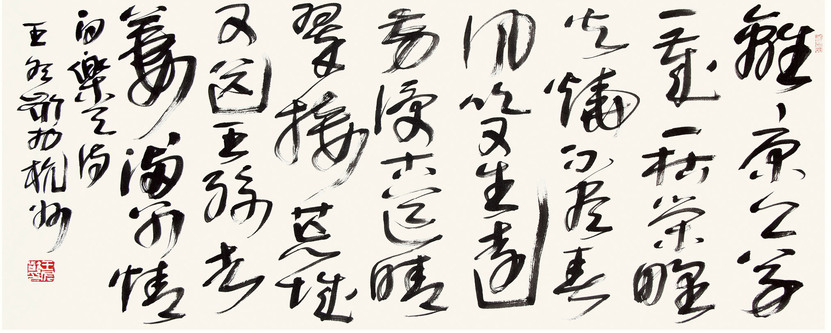 離々原上草
一歲一枯榮野
火燒不盡春
風吹又生遠
芳侵古道晴
翠接荒城
又送王孫去
萋々滿別情
白樂天詩
王冬齡於杭州